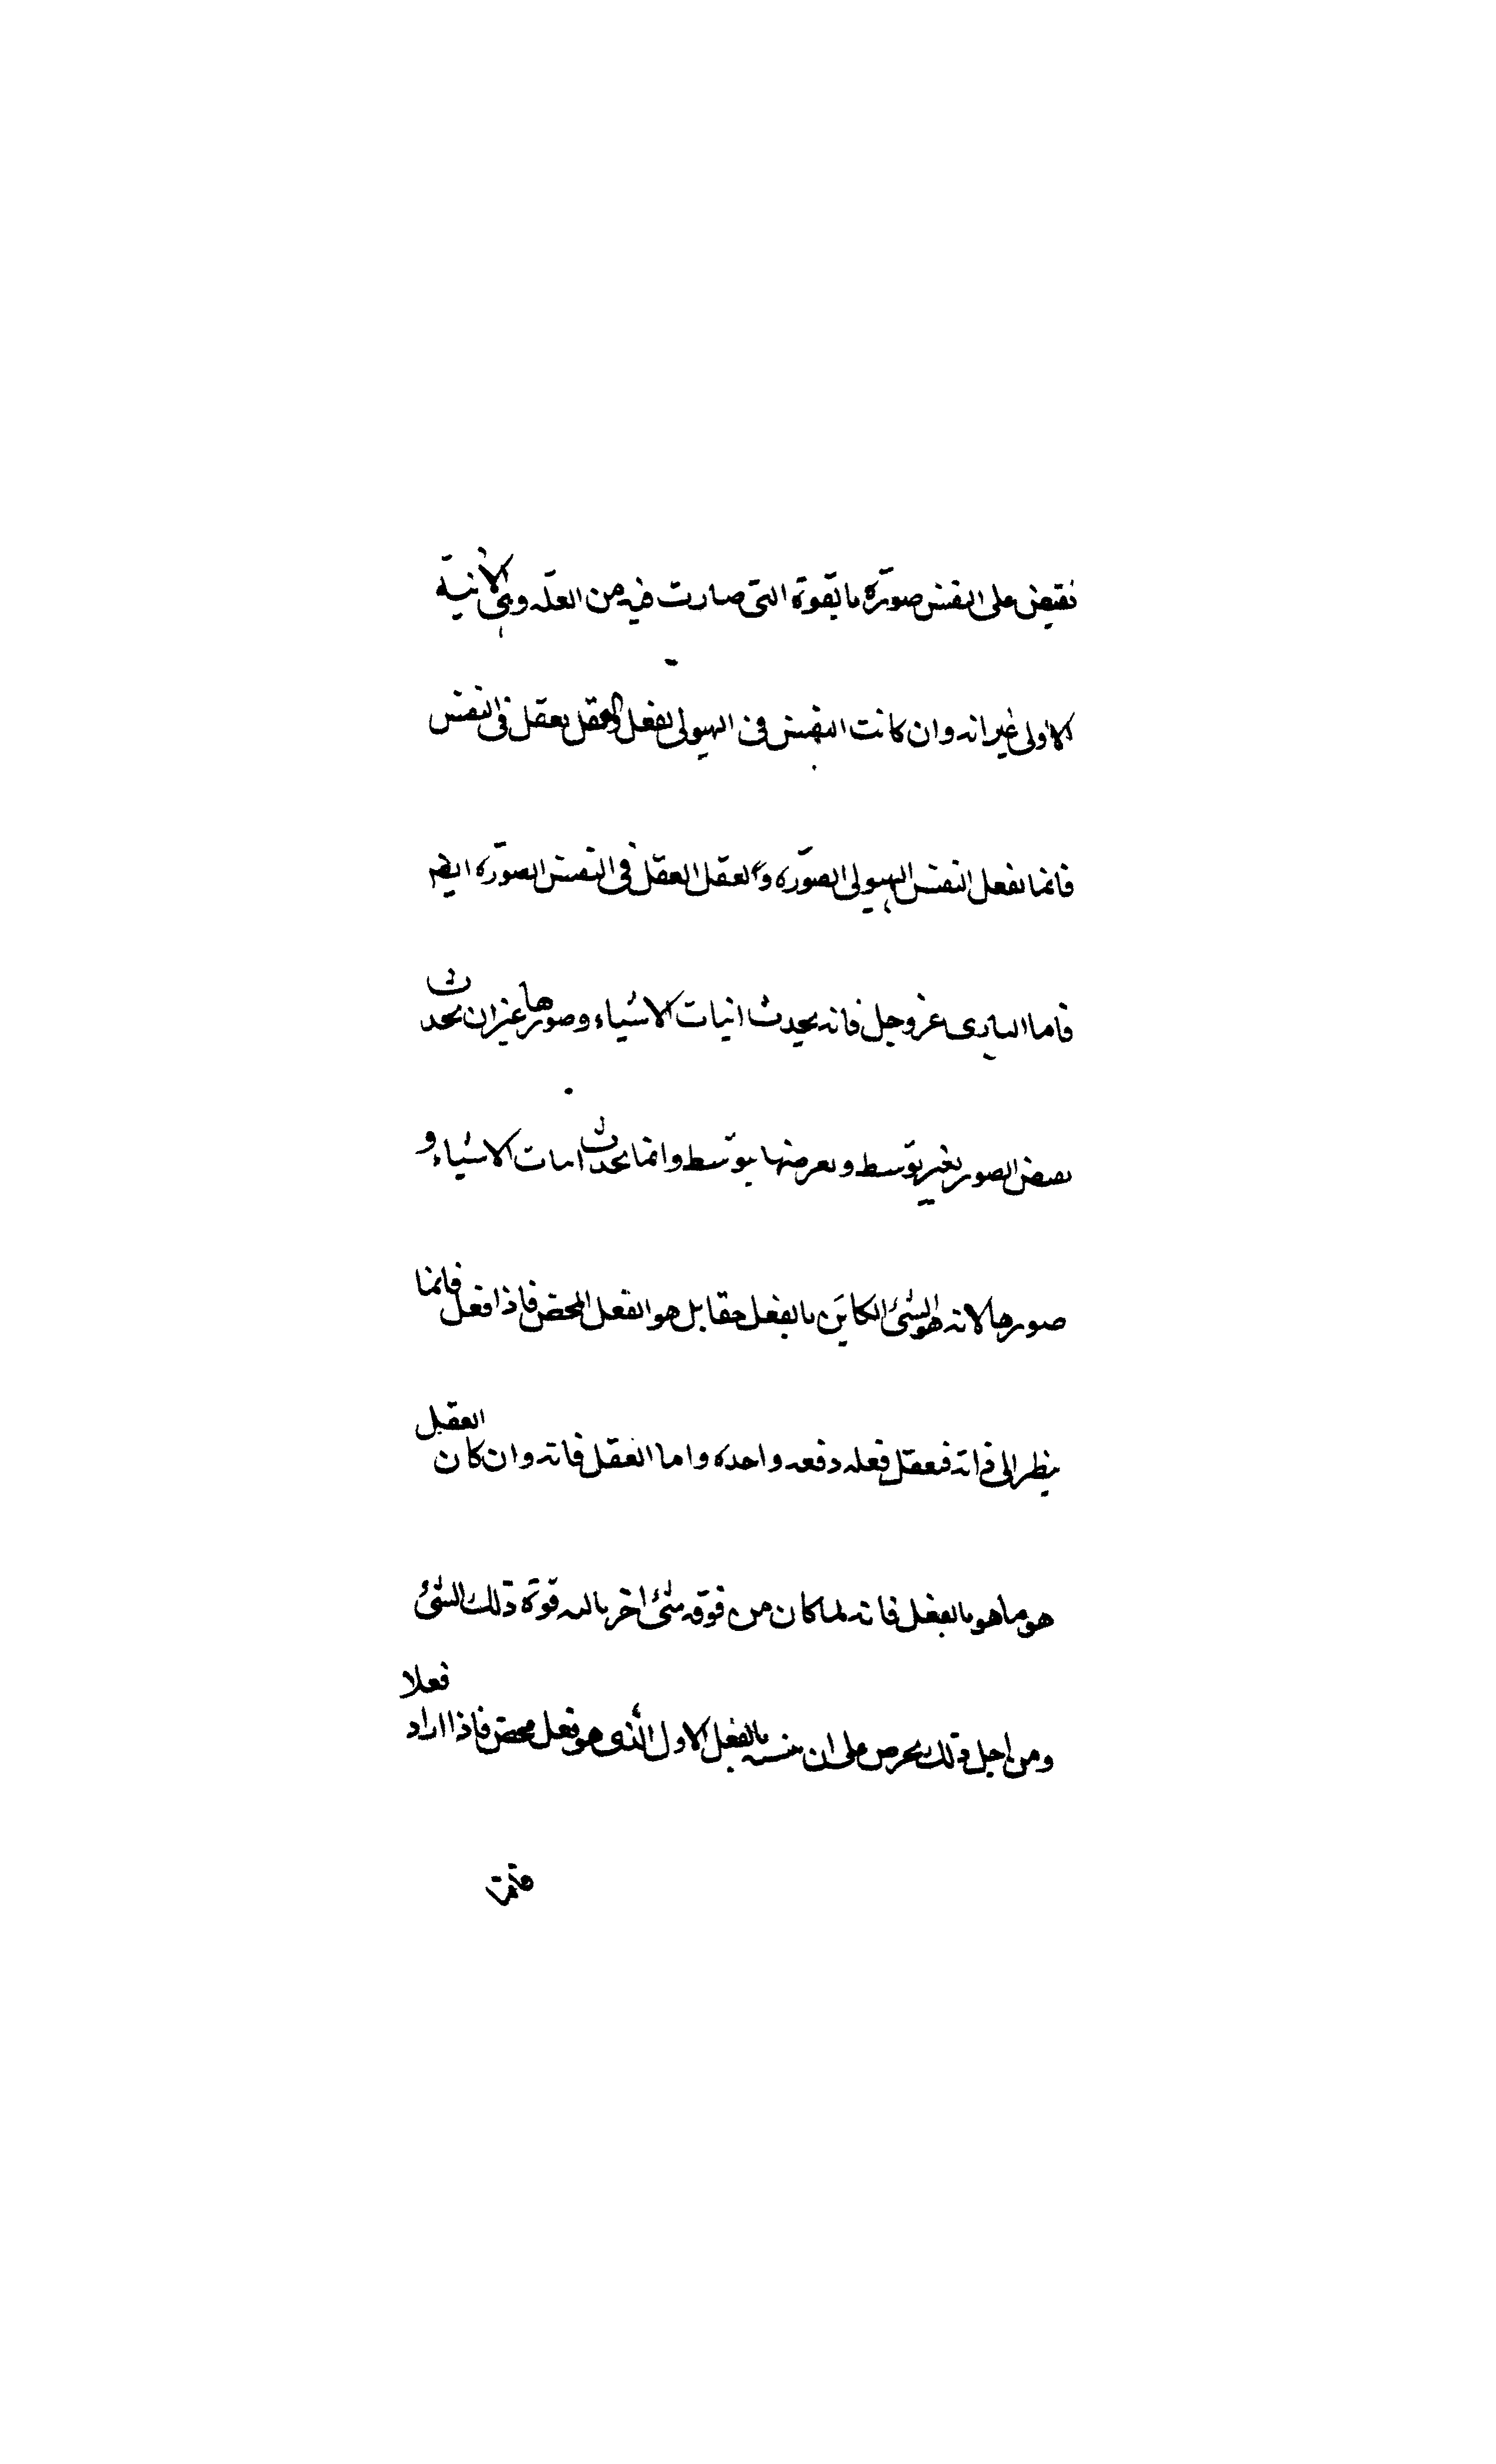 تفيض على النفس صورة بالقوة التى صارت فيه من العلة وهى الانية
الاولى غير انه وان كانت النفس فى الهيولى تفعل والعقل يعقل فى النفس
فانما تفعل النفس الهيولى الصورة والعقل العقل فى النفس الصورة ايضم
فاما البارى عز وجل فانه يحدث انيات الاشياء وصورها غير ان يحدث
بعض الصور بغير توسط وبعرضها بتوسط وانما يحدث انيات الاشياء و
صورها لانه هو الشئ الكاين بالفعل حقا بل هو الفعل المحض فاذا فعل فانما
ينظر الى ذاته فيعقل فعله دفعه واحدة واما العقل فانه وان كان العقل
هو ما هو بالفعل فانه لما كان من فوقه شئ اخر نالته قوة ذلك الشئ
ومن اجل ذلك يحرص على ان يتشبه بالفعل الاول الذى هو فعل محض فاذا اراد فعلا